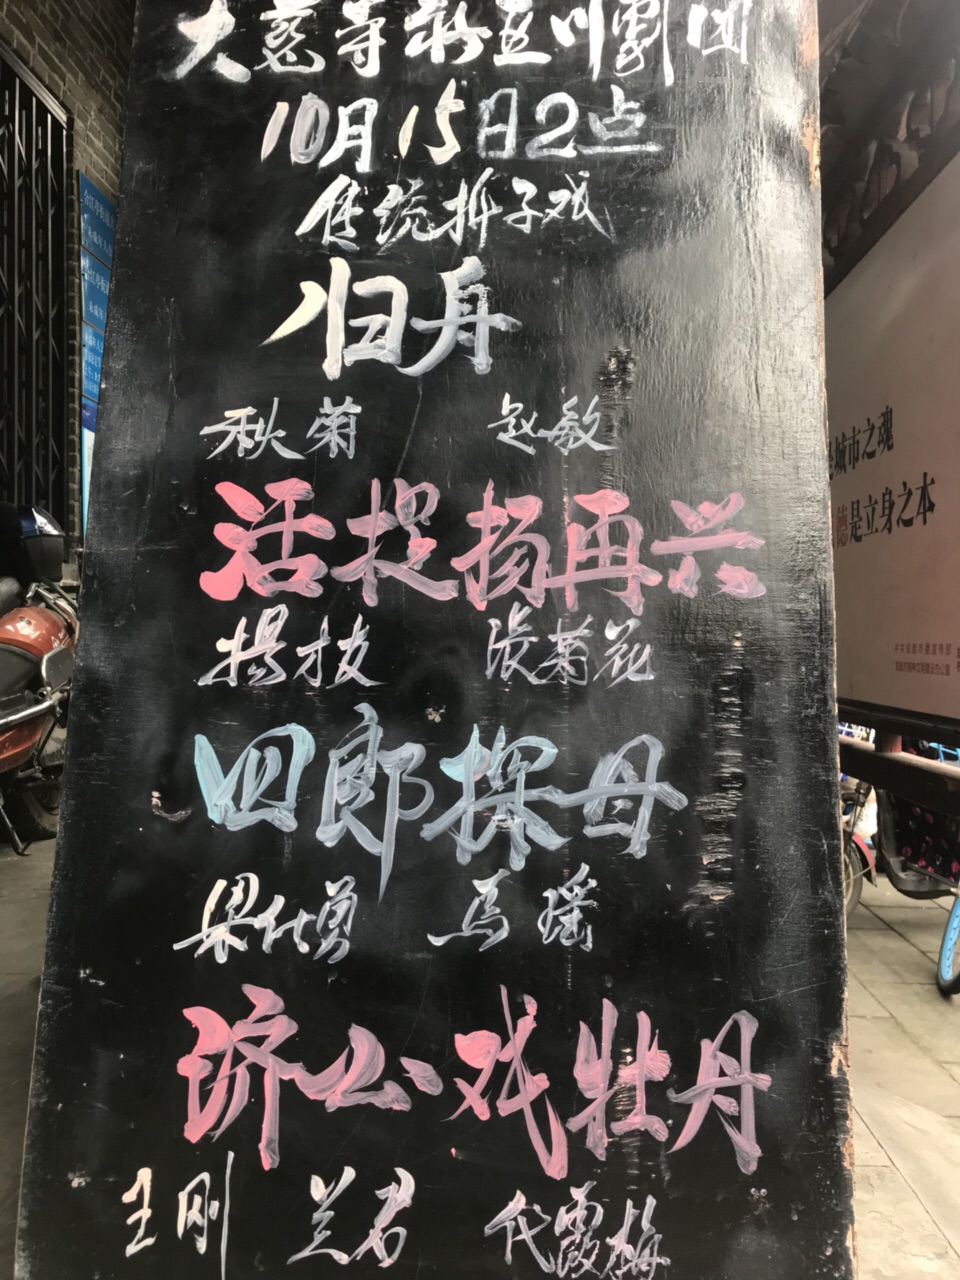 大慈寺新五川劇团
10月15日2点
传统折子戏
归舟
秋菊 赵敏
活捉扬再兴
揚枝 张菊花
四郎探母
梁仕勇 馬瑶
济公戏牡丹
王刚 兰君 代霞梅
城市之魂
德是立身之本